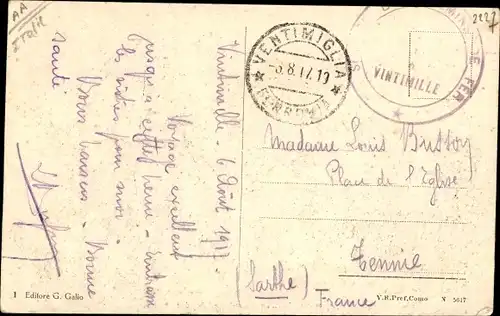 AA
ITALIE
2227
VENTIMIGLIA
FERROVIA
-6.8.17.19
DE FER
VINTIMILLE
Vintimille - 6 Août 1917.
Voyage excellent
jusqu'à cette heure -
pour moi.
Bons baisers. Bonne
santé
Madame Louis
Place de l'Eglise
Tennie
(Sarthe)
France
1 Editore G. Galio
V.R.Pref.Como N 5017